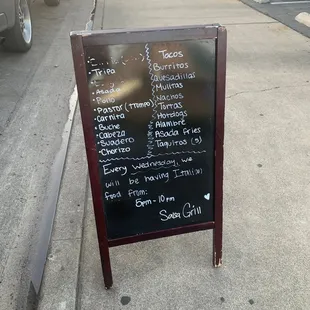 Tripa
Asada
Pollo
Pastor (Trompo)
Carnita
Buche
Cabeza
Suadero
Chorizo
Tacos
Burritos
Quesadillas
Mulitas
Nachos
Tortas
Hotdogs
Alambre
Asada fries
Taquitos (5)
Every Wednesday, we
will be having Italian
food from:
5pm - 10pm
Salsa Grill